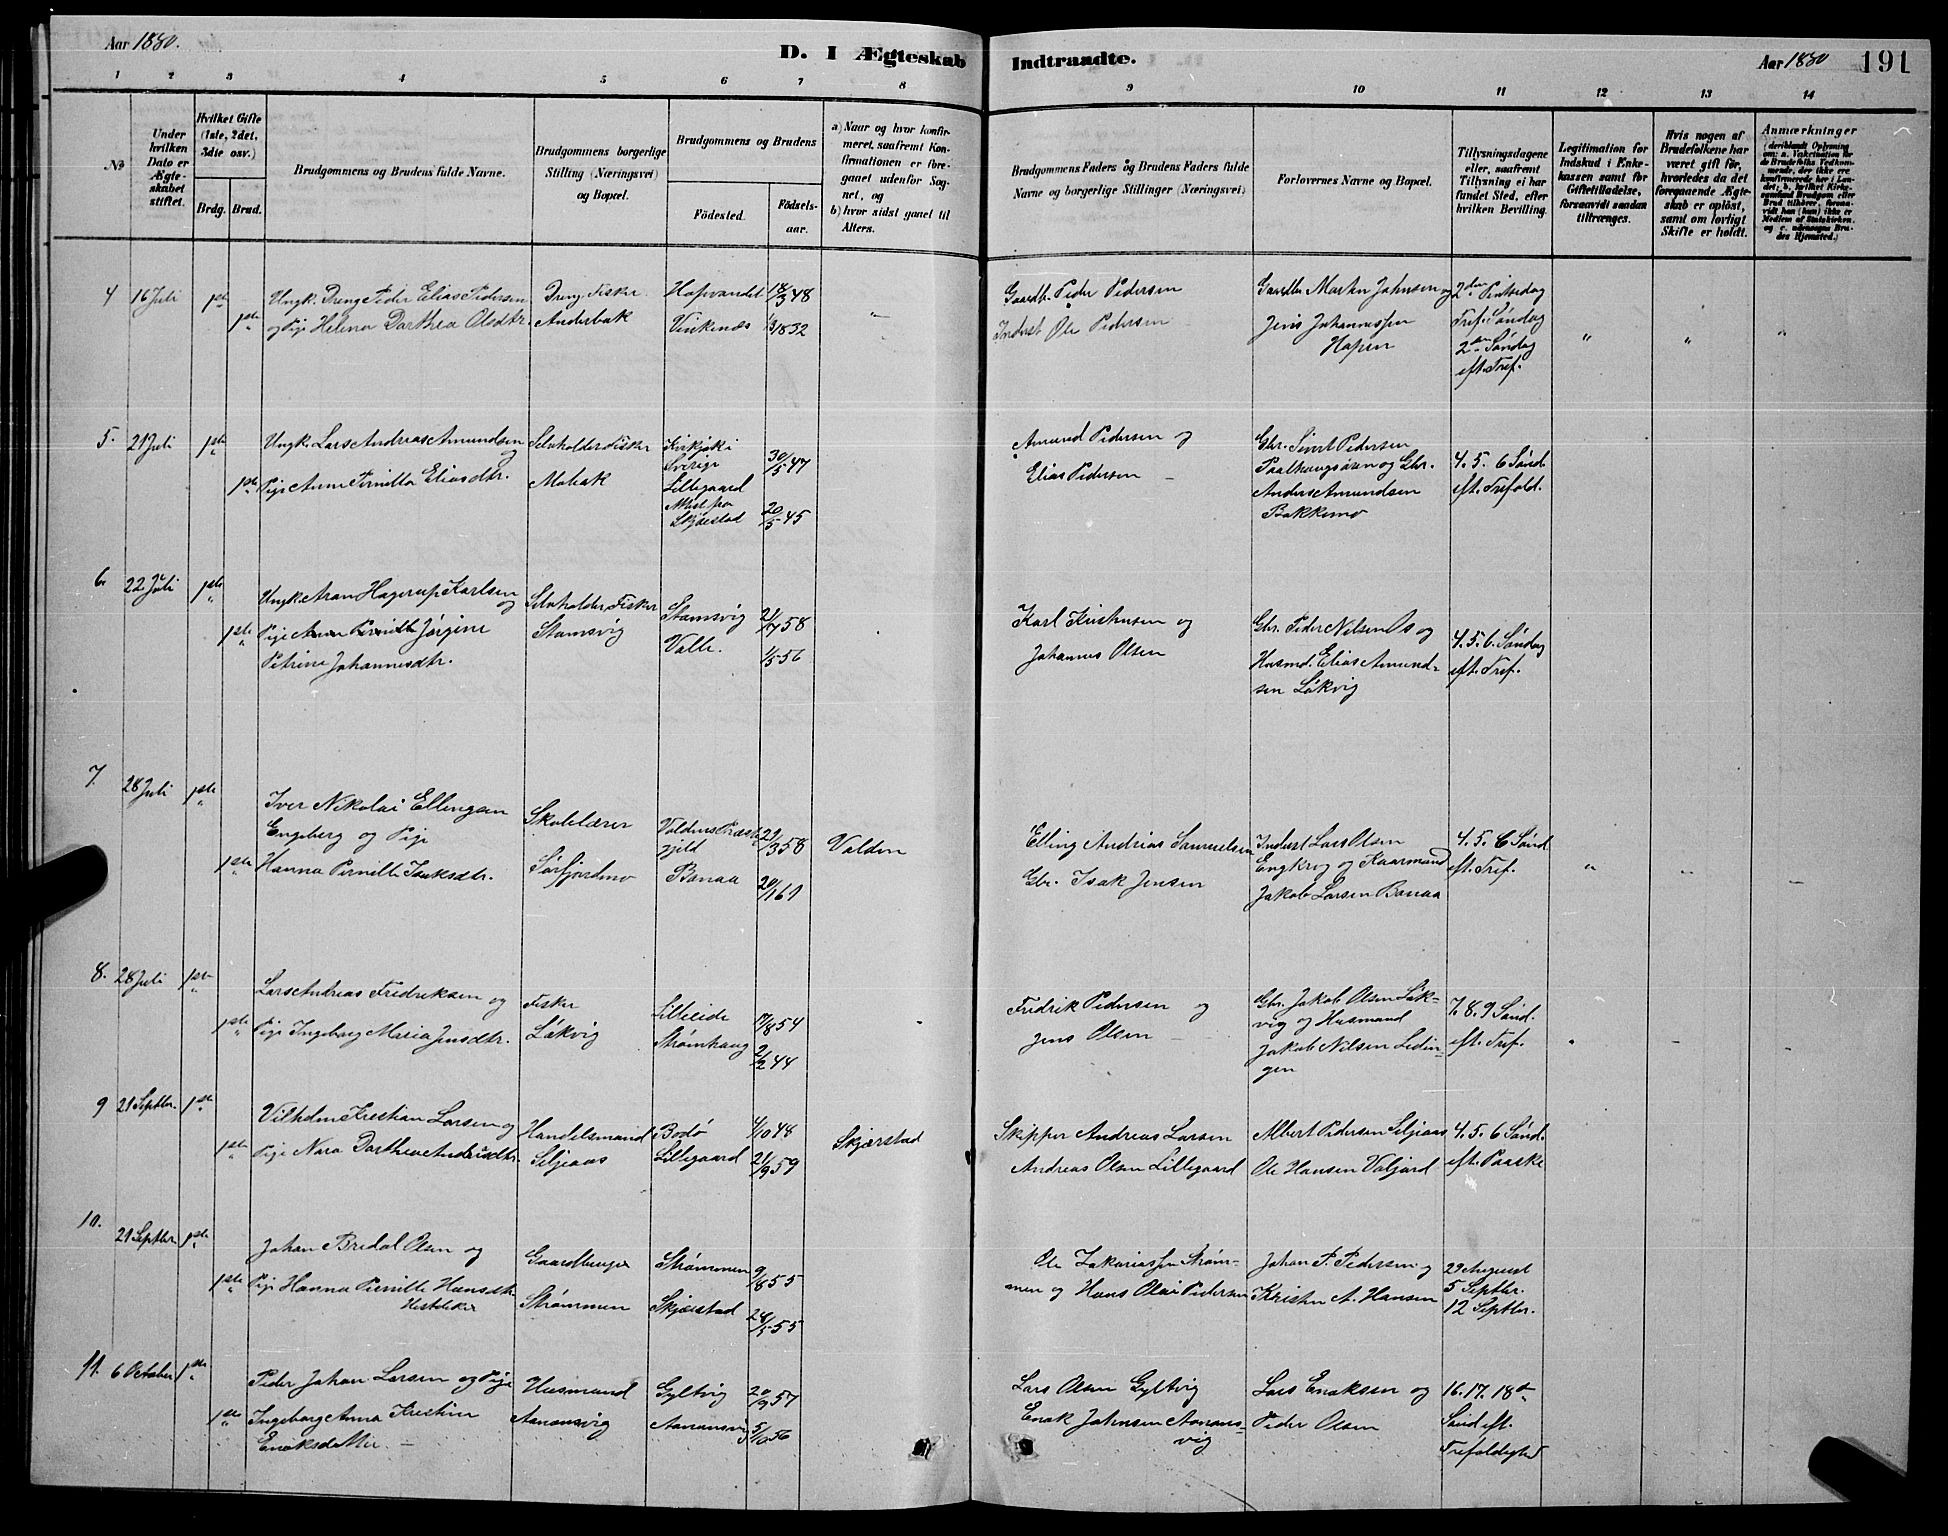 Aar 1880.
D. I Ægteskab
Indtraadte.
Aar 1880
191
1 2 3 4 5 6 7 8
9 10 11 12 13 14
No
Under hvilken Dato er Ægteskabet stiftet.
Hvilket Gifte (1ste, 2det, 3die osv.)
Brdg. Brud.
Brudgommens og Brudens fulde Navne.
Brudgommens borgerlige Stilling (Næringsvei) og Bopæl.
Brudgommens og Brudens
Födested.
Födselsaar.
a) Naar og hvor konfirmeret, saafremt Konfirmationen er foregaaet udenfor Sognet, og
b) hvor sidst gaaet til Alters.
Brudgommens Faders og Brudens Faders fulde Navne og borgerlige Stillinger (Næringsvei)
Forlovernes Navne og Bopæl.
Tillysningsdagene eller, saafremt Tillysning ei har fundet Sted, efter hvilken Bevilling.
Legitimation for Indskud i Enkekassen samt for Giftetilladelse, forsaavidt saadan tiltrænges.
Hvis nogen af Brudefolkene har været gift før, hvorledes da det foregaaende Ægteskab er oplöst, samt om lovligt Skifte er holdt.
Anmærkninger
4 16 Juli 1ste
Ungk. Dreng Peder Elias Pedersen
Dreng. Fisker
Hopvandet 18/3 48
Gaardbr. Peder Pedersen
Gaardbr Martin Johnsen og
2den Pintsedag
1ste
og Pige Helena Dorthea Olsdtr.
Anderbak
Vinkenæs 13/8 52
Inderst Ole Pedersen
Jens Johannessen
Tref. Søndag
Hopen
2den Søndag
eft. Tref.
5. 21 Juli 1ste
Ungk. Lars Andreas Amundsen og
Selvholder Fisker
Sverige
30/5 47
Amund Pedersen og
Gbr. Sivert Pedersen
1ste
Pige Anne Pernilla Eliasdtr.
Mobak
Lillegaard
Elias Pedersen
Gbr.
4. 5. 6 Sønd.
Anders Amundsen
eft. Trefold.
Skjerstad 20/5 45
Bakkemo
6. 22 Juli 1ste
Ungk. Aron Hagerup Karlsen og
Selvholder Fisker
Stamsvig
21/7 58
Karl Kristensen og
Gbr. Peder Nilsen Os og
1ste
Pige Anne Pernille Jørgine
Stamsvig
Valle.
Johannes Olsen
Husmd. Elias Amund-
4. 5. 6. Søndag
Petrine Johannesdtr.
1/5 56
sen Løkvig
eft. Tref.
7. 28 Juli 1ste
Iver Nikolai Ellingsen
Skolelærer
Engeberg og Pige
gjeld
29/3 58
Valden
Elling Andreas Samuelsen
Inderst Lars Olsen
4. 5. 6 Sønd
1ste
Hanna Pernille Isaksdtr.
Sørfjordmo
Bonaa
20/1 61
Gbr. Isak Jensen
Engkrog og Kaarmand
eft. Tref.
Jakob Larsen Bonaa
8. 28 Juli 1ste
Lars Andreas Fredriksen og
Fisker
Lilleeide
17/8 54
Fredrik Pedersen og
Gbr. Jakob Olsen Løk-
7. 8. 9 Sønd.
1ste
Pige Ingeborg Maria Jensdtr.
Løkvig
Strømhaug
2/2 44
Jens Olsen
vig og Husmand
eft. Tref.
Jakob Nilsen Ledin-
gen
9 21 Septbr. 1ste
Vilhelm Kristian Larsen og
Handelsmand
Bodø
4/10 48
Skjærstad
Skipper Andreas Larsen
Albert Pedersen Seljeaas
4. 5. 6 Sønd.
1ste
Pige Nora Dorthea Andreasdtr.
Seljeaas
Lillegaard
21/9 59
Andreas Olsen Lillegaard
Ole Hansen Valjord
eft. Paaske
10. 21 Septbr. 1ste
Johan Bredal Olsen og
Gaardbruger
Strømmen
9/8 55
Ole Zakariassen Strøm-
Johan P. Pedersen og
29 August
1ste
Pige Hanna Pernille Hansdtr.
Strømmen
Skjerstad
24/5 55
men og Hans Olai Pedersen
Kristen A. Hansen
5 Septbr.
12 Septbr.
11. 6 October 1ste
Peder Johan Larsen og Pige
Husmand
Gyltvig
20/9 57
Lars Olsen Gyltvig
Lars Enoksen og
16. 17. 18de
1ste
Ingeborg Anna Kristine
Aanonsvig
Aanonsvig
5/10 56
Enok Johnsen Aanons-
vig
Peder Olsen
Sønd eft.
Enoksdatter.
Trefoldighed